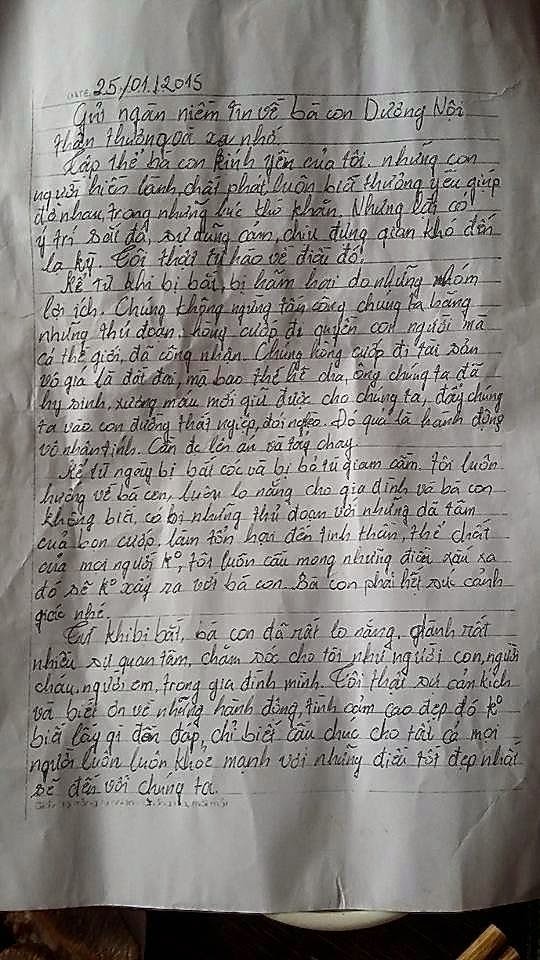 DATE 25/01/2015
Gửi ngàn niềm tin về bà con Dương Nội
thân thương và xa nhớ.
Tập thể bà con kính yên của tôi. những con
người hiền lành, chất phát, luôn biết thương yêu giúp
đỡ nhau, trong những lúc khó khăn. Nhưng lại có
ý trí sắt đá, sự dũng cảm, chịu đựng gian khó đến
lạ kỳ. Tôi thật tự hào về điều đó.
Kể từ khi bị bắt, bị hãm hại do những nhóm
lợi ích. Chúng không ngừng tấn công chúng ta bằng
những thủ đoạn. hòng cướp đi quyền con người mà
cả thế giới, đã công nhận. Chúng hòng cướp đi tài sản
vô giá là đất đai, mà bao thế hệ cha, ông chúng ta đã
hy sinh, xương máu mới giữ được cho chúng ta, đẩy chúng
ta vào con đường thất nghiệp, đói nghèo. Đó quả là hành động
vô nhân tính. Cần đc lên án và tẩy chay.
Kể từ ngày bị bắt cóc và bị bỏ tù giam cầm. tôi luôn
hướng về bà con, luôn lo nắng cho gia đình và bà con
không biết, có bị những thủ đoạn với những dã tâm
của bọn cướp. làm tổn hại đến tinh thần, thể chất
của mọi người k°, tôi luôn cầu mong những điều xấu xa
đó sẽ k° xảy ra với bà con. Bà con phải hết sức cảnh
giác nhé.
Từ khi bị bắt, bà con đã rất lo nắng, giành rất
nhiều sự quan tâm, chăm sóc cho tôi như người con, người
cháu, người em, trong gia đình mình. Tôi thật sự cảm kích
và biết ơn về những hành động, tình cảm cao đẹp đó k°
biết lấy gì đền đáp, chỉ biết cầu chúc cho tất cả mọi
người luôn luôn khỏe mạnh với những điều tốt đẹp nhất
sẽ đến với chúng ta.